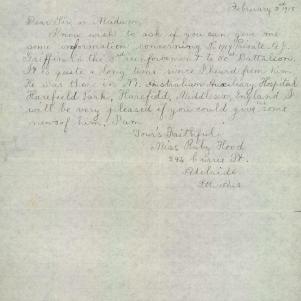 February 3rd 1918
Dear Sir or Madam,
I now wish to ask if you can give me
some information concerning No 1919 Private G. J.
Griffin to the 3rd reinforcement to 50 Battalion.
It is quite a long time since I heard from him.
He was then in No 1 Australian Auxiliary Hospital
Harefield Park, Harefield, Middlesex, England. I
will be very pleased if you could give me some
news of him. I am
Your's Faithful
Miss Ruby Hood
Currie St.
Adelaide